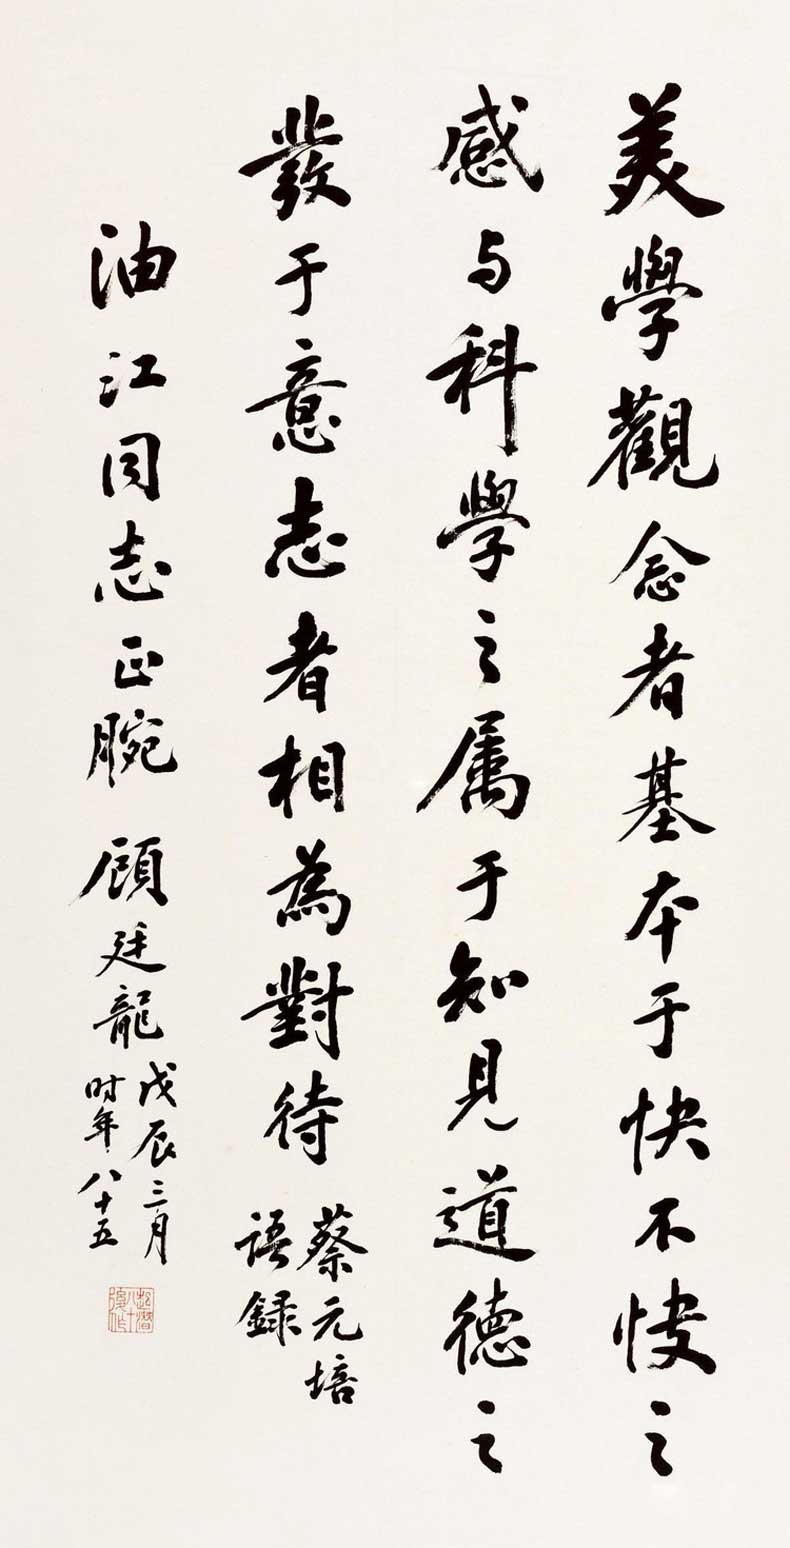 美學觀念者基本于快不快之
感与科學之属于知見道德之
發于意志者相為對待
蔡元培
語録
油江同志正腕 顾廷龍
戊辰三月
时年八十五